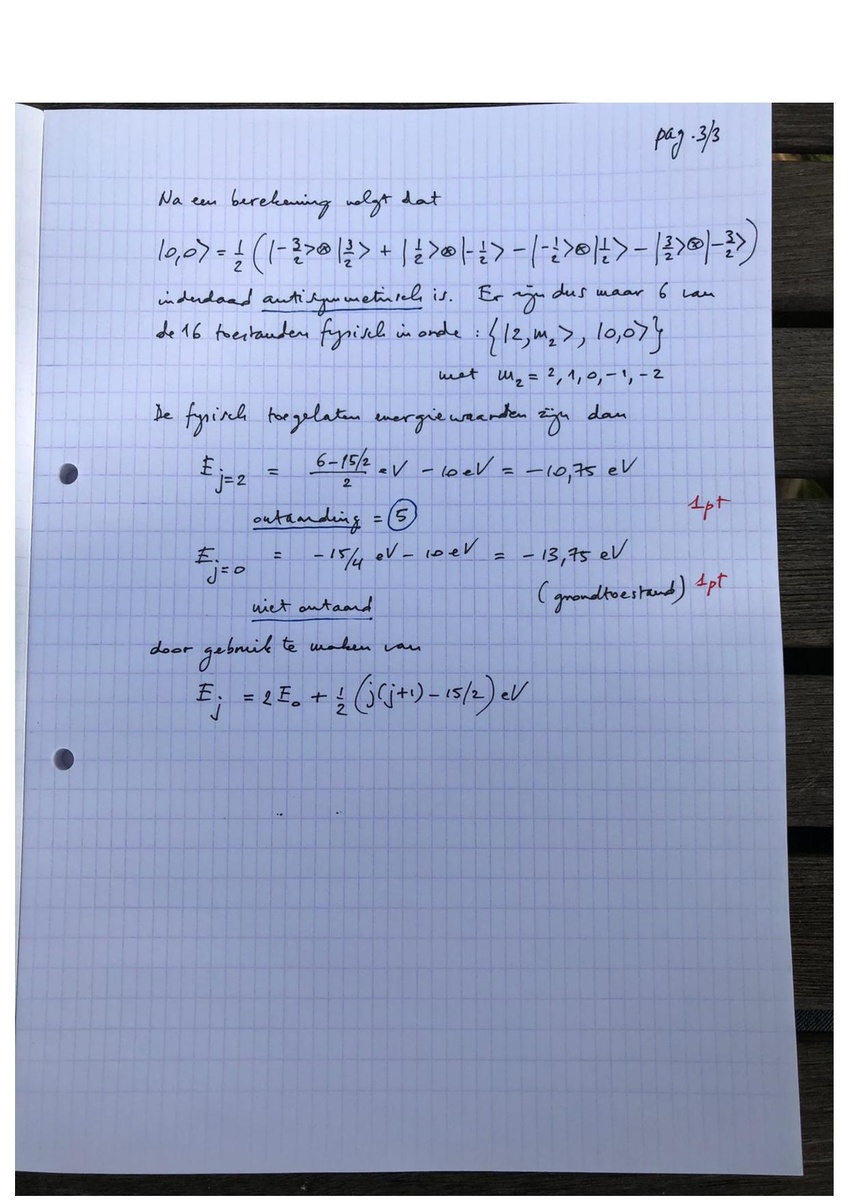 pag. 3/3
Na een berekening volgt dat
|0,0> = 1/2 (|-3/2>⊗|3/2> + |1/2>⊗|-1/2> - |-1/2>⊗|1/2> - |3/2>⊗|-3/2>)
inderdaad antisymmetrisch is. Er zijn dus maar 6 van
de 16 toestanden fysisch in orde : {|2,m₂>, |0,0>}
met m₂ = 2, 1, 0, -1, -2
De fysisch toegelaten energiewaarden zijn dan
E_{j=2} = (6-15/2)/2 eV - 10 eV = -10,75 eV
ontaarding = 5
1pt
E_{j=0} = -15/4 eV - 10 eV = -13,75 eV
(grondtoestand) 1pt
niet ontaard
door gebruik te maken van
E_j = 2E₀ + 1/2 (j(j+1) - 15/2) eV